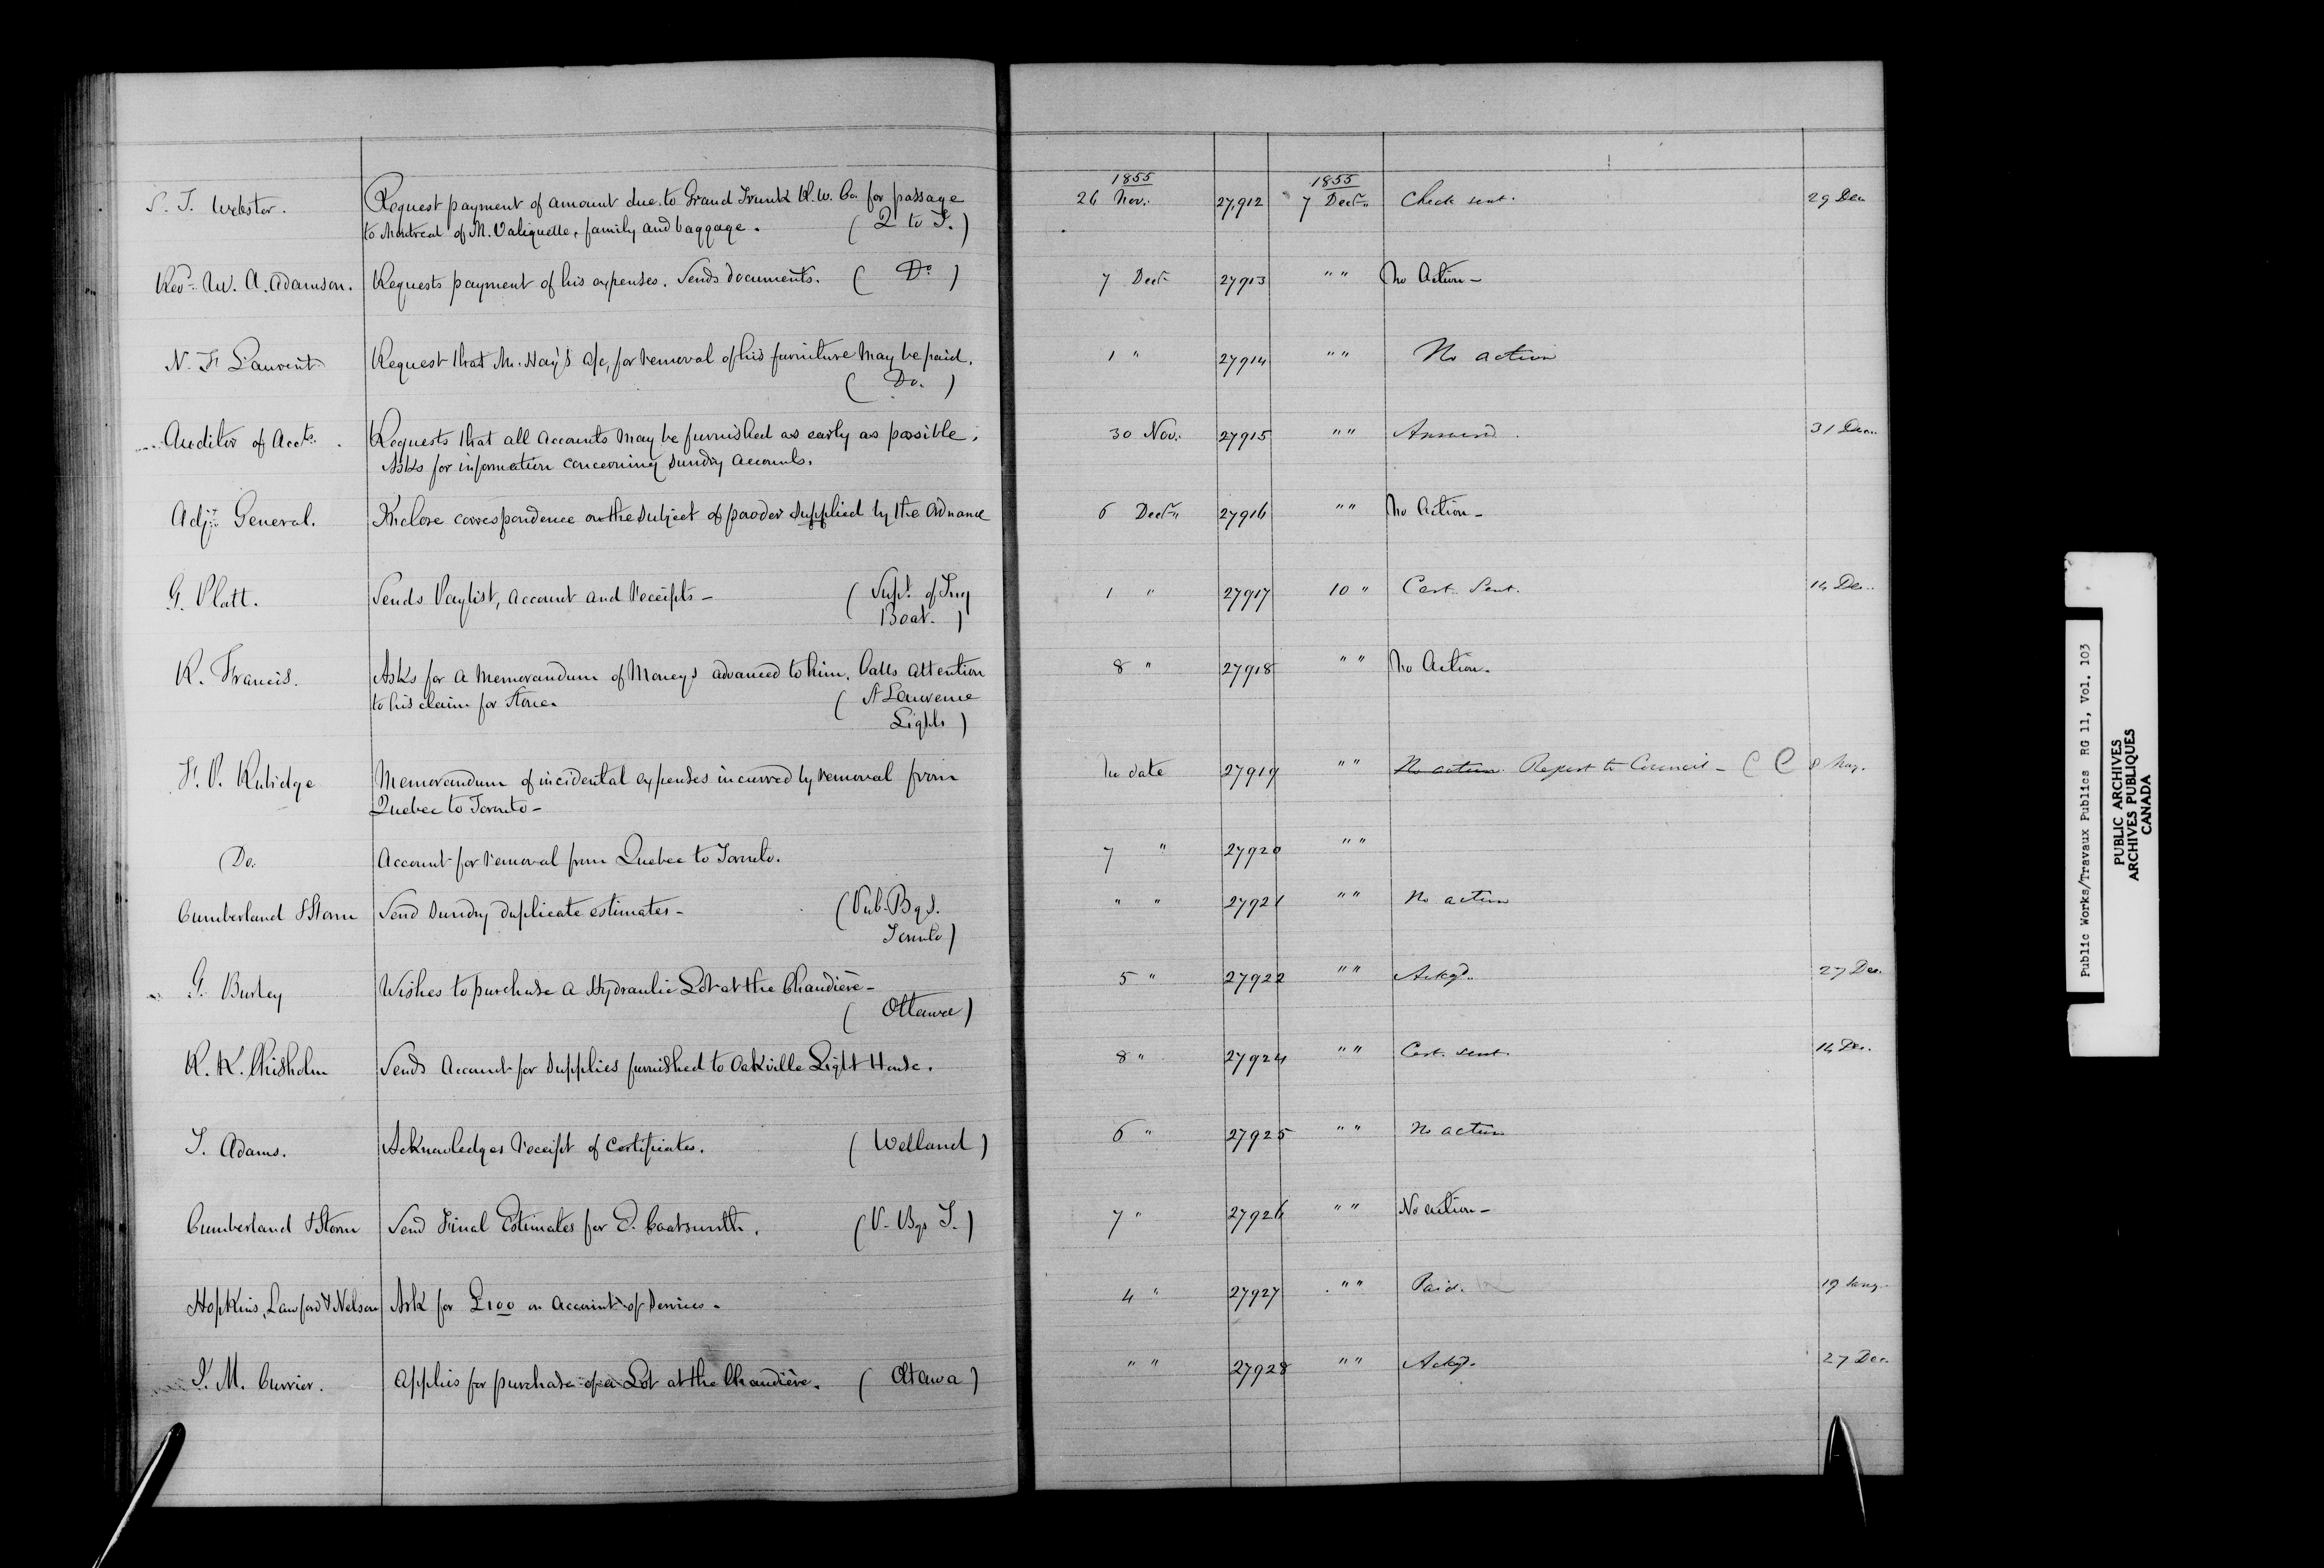 1855 1855
S. T. Webster. Request payment of amount due to Grand Trunk R.W. Co. for passage 26 Nov. 27,912 7 Decr. Check sent. 29 Dec
to Montreal of M. Valiquette, family and baggage. ( Q to T. )
Revd. W. A. Adamson. Requests payment of his expenses. Sends documents. ( Do ) 7 Decr 27913 " " No Action -
N. F. Laurent Request that Mr. Hay's a/c, for removal of his furniture may be paid. 1 " 27914 " " No action
( Do. )
Auditor of Accts. Requests that all accounts may be furnished as early as possible. 30 Nov. 27915 " " Answd. 31 Dec.
Asks for information concerning sundry accounts.
Adjt. General. Inclose correspondence on the subject of powder supplied by the Ordnance 6 Decr. 27916 " " No Action -
G. Platt. Sends Paylist, account and receipts - ( Supt. of Tug 1 " 27917 10 " Cert. Sent. 14 Dec.
Boat. )
R. Francis. Asks for a Memorandum of Moneys advanced to him. Calls attention 8 " 27918 " " No Action.
to his claim for Stone. ( St Lawrence
Lights )
F. P. Rubidge Memorandum of incidental expenses incurred by removal from No date 27919 " " No action. Report to Council - 8 May.
Quebec to Toronto -
Do. Account for removal from Quebec to Toronto. 7 " 27920 " "
Cumberland & Storm Send sundry duplicate estimates - ( Pub. Bgs. " " 27921 " " No action
Toronto )
G. Burley Wishes to purchase a Hydraulic Lot at the Chaudière - 5 " 27922 " " Ackgd. 27 Dec.
( Ottawa )
R. K. Chisholm Sends Account for supplies furnished to Oakville Light House. 8 " 27924 " " Cert. sent. 14 Dec.
T. Adams. Acknowledges receipt of Certificates. ( Welland ) 6 " 27925 " " No action
Cumberland & Storm Send Final Estimates for E. Coatsworth. ( P. Bgs T. ) 7 " 27926 " " No action -
Hopkins, Lawford & Nelson Ask for £100 on account of services. 4 " 27927 " " Paid. 19 Jany.
J. M. Currier. Applies for purchase of a Lot at the Chaudière. ( Ottawa ) " " 27928 " " Ackgd. 27 Dec.
Public Works/Travaux Publics RG 11, Vol. 103
PUBLIC ARCHIVES
ARCHIVES PUBLIQUES
CANADA